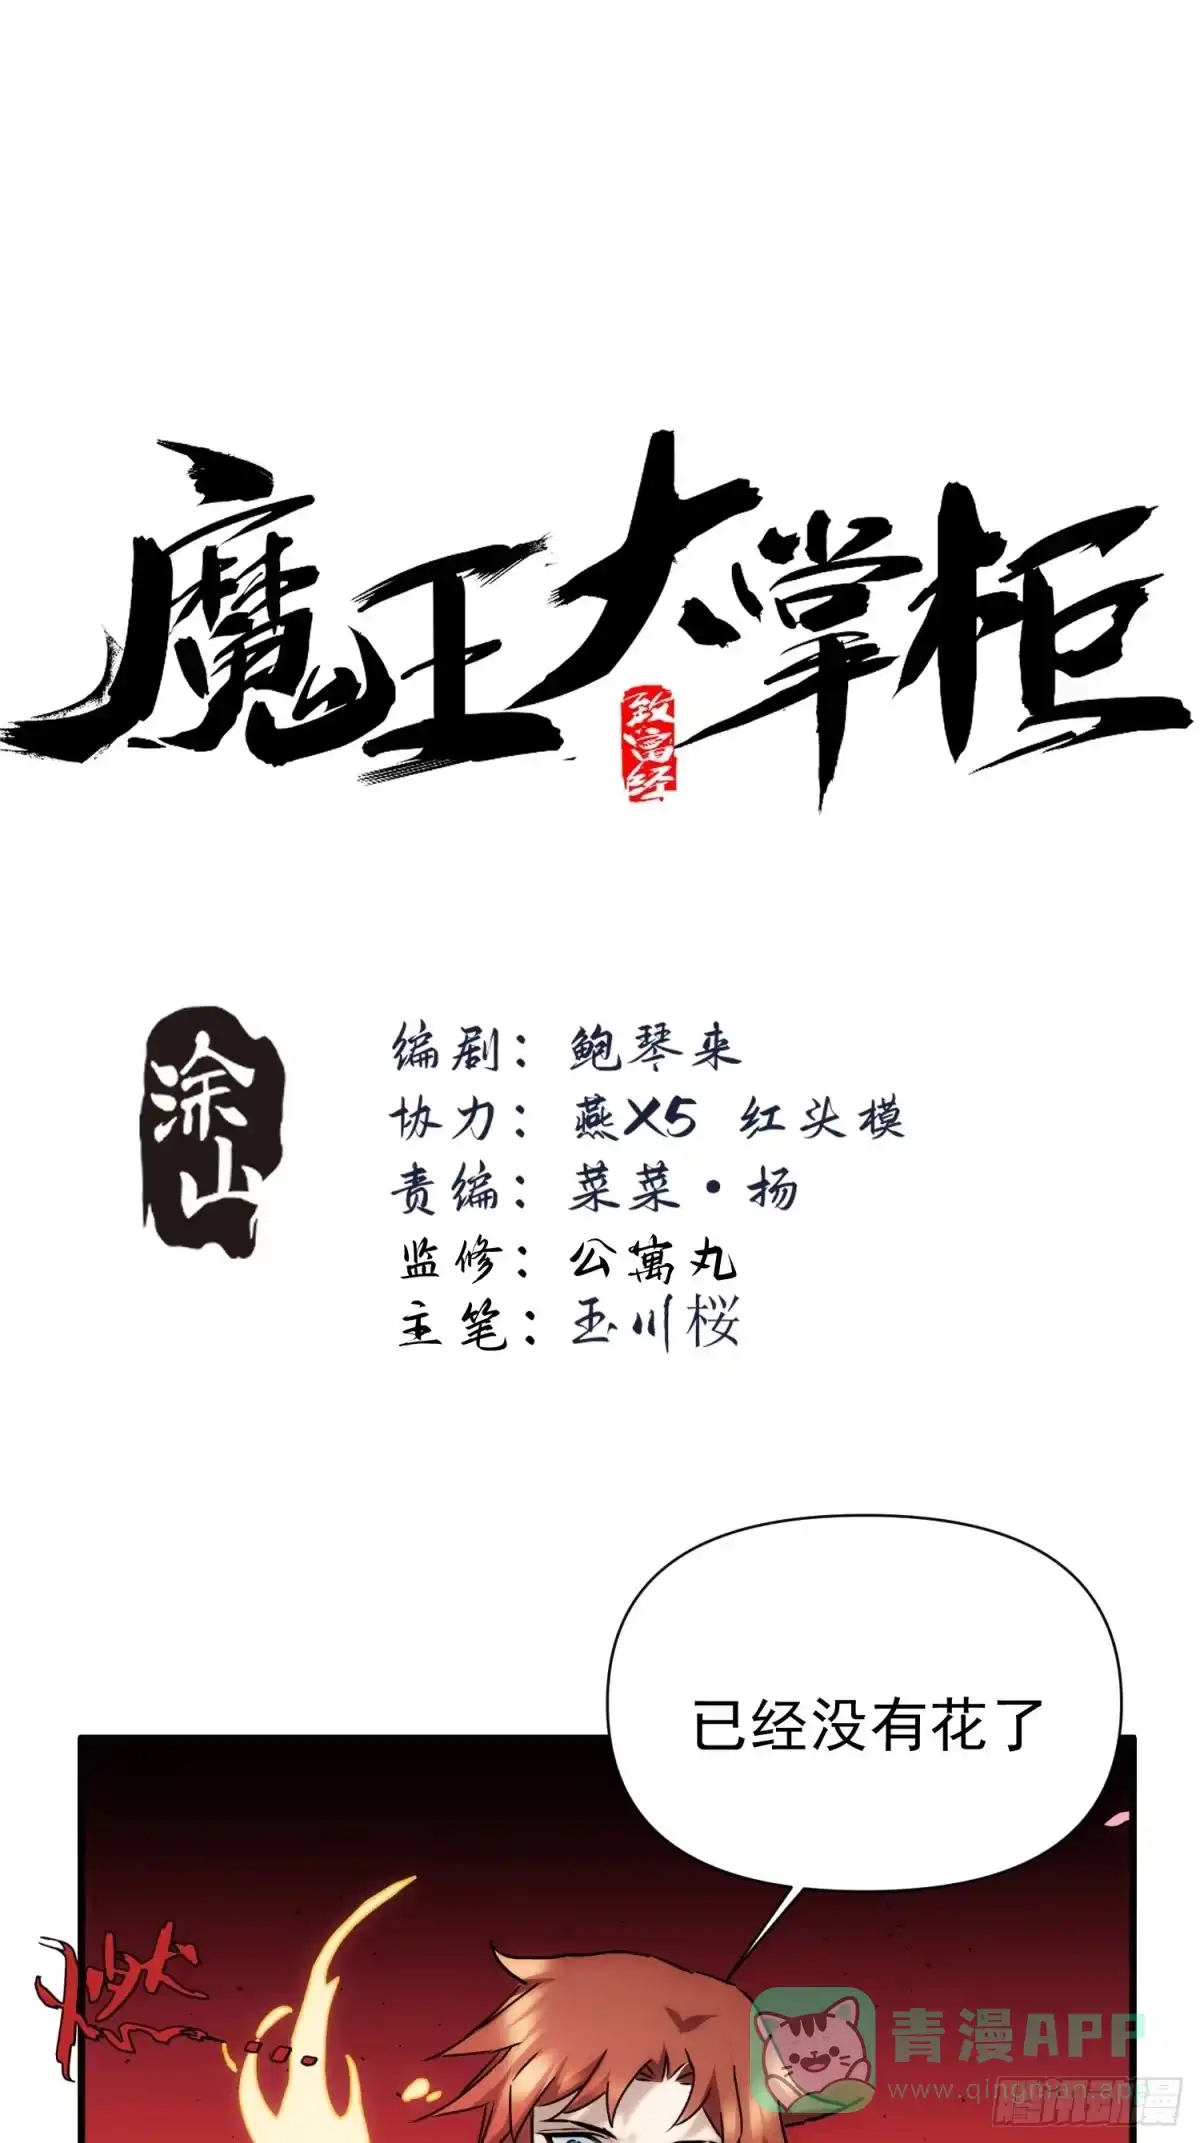 魔王大掌柜
致富经
涂山
编剧：鲍琴来
协力：燕X5 红头模
责编：菜菜·扬
监修：公寓丸
主笔：玉川桜
已经没有花了
燃...
青漫APP
www.qingman.app
腾讯动漫